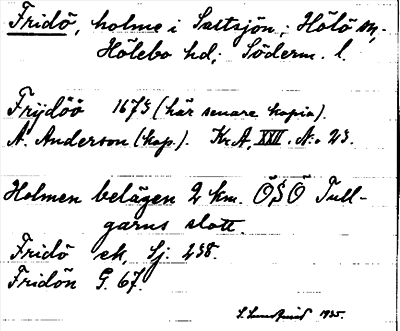 Fridö, holme i Saltsjön; Hölö sn,
Hölebo hd; Söderm. l.
Frijdöö 1675 (här senare kopia).
A. Anderson (kop.). Kr.A, XXII. N:o 23.
Holmen belägen 2 km. ÖSÖ Tull-
garns slott.
Fridö ek, Sj. 238.
Fridön G. 67.
1935.